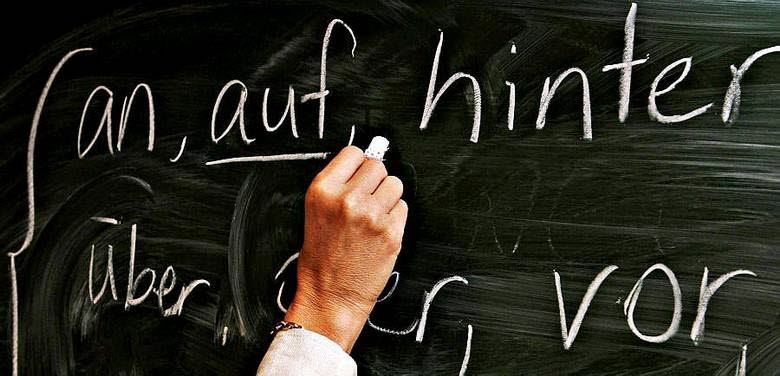 an, auf, hinter
über, vor,